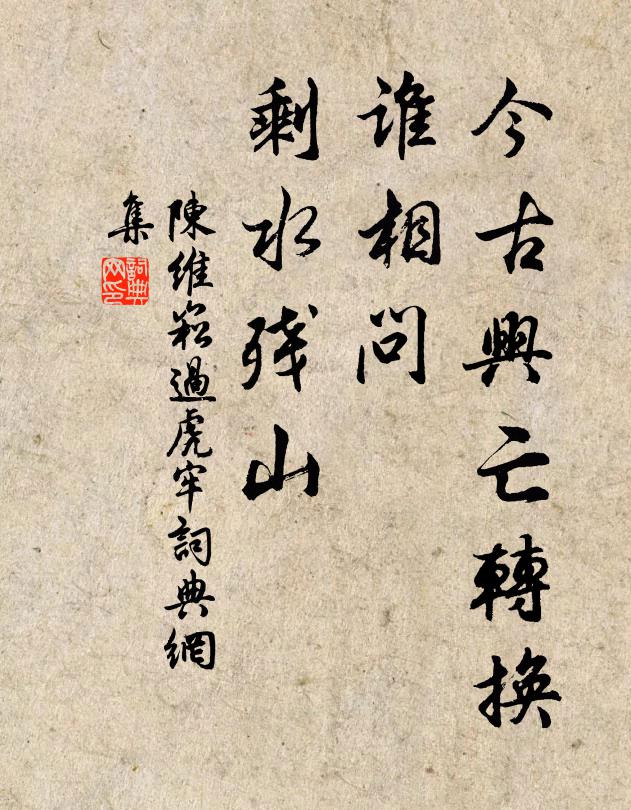 今古興亡轉換
誰相問
剩水殘山
陳維崧過虎牢詞典網
集
詞典
网印